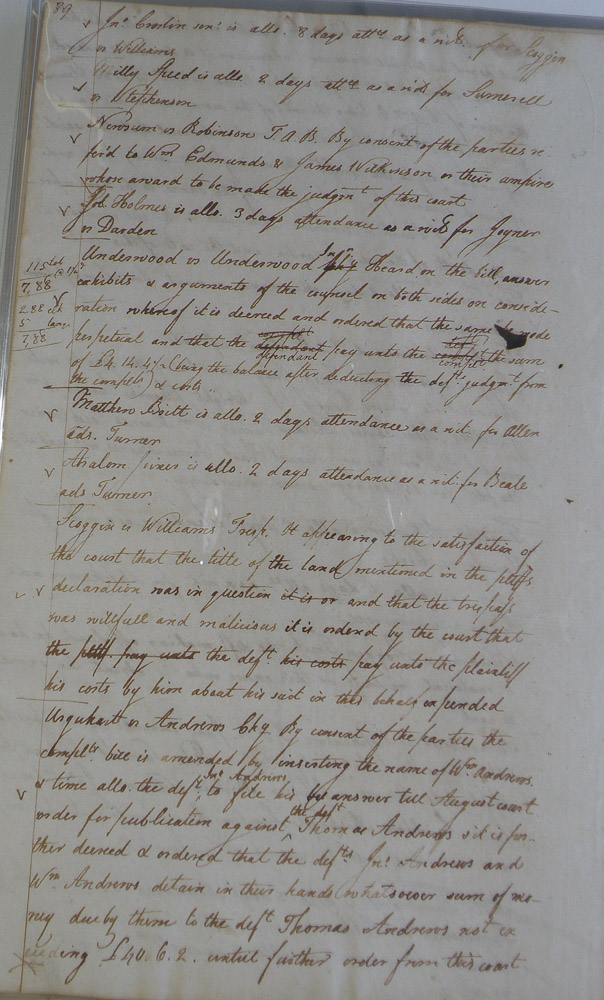 89
Jno. Croslin senr. is allo. 8 days attce. as a wit. for Scoggin
vs Williams
Milly Speed is allo. 2 days attce. as a wit. for Sumerell
vs Stephenson
Newsum vs Robinson T.A.B. By consent of the parties re-
fer'd to Wm. Edmunds & James Wilkinson or their umpire
whose award to be made the judgmt. of this court
Job. Holmes is allo. 3 days attendance as a wit. for Joyner
vs Darden
Underwood vs Underwood Injn. Heard on the bill, answer
exhibits & arguments of the counsel on both sides on conside-
115
7,88
2.88
5
7,88
ration whereof it is decreed and ordered that the same be made
perpetual and that the defendant pay unto the complt. the sum
of £4.14. (being the balance after deducting the deft. judgmt. from
the complts) & costs
Matthew Boitt is allo. 2 days attendance as a wit. for Allen
ads. Turner
Absalom Joiner is allo. 2 days attendance as a wit. for Beale
ads Turner
Scoggin vs Williams Tresp. It appearing to the satisfaction of
the court that the title of the land mentioned in the pltffs
declaration was in question it is or and that the trespass
was willfull and malicious it is orderd by the court that
the pltff. pay unto the deft his costs pay unto the plaintiff
his costs by him about his suit in this behalf expended
Urquhart vs Andrews Chy By consent of the parties the
complts. bill is amended by inserting the name of Wm. Andrews
& time allo. the deft. Jno. Andrews to file his answer till August court
order for publication against the deft Thomas Andrews & it is fur-
ther decreed & ordered that the defts Jno. Andrews and
Wm. Andrews detain in their hands whatsoever sum of mo-
ney due by them to the deft Thomas Andrews not ex
ceeding £40.6.2. until further order from this court